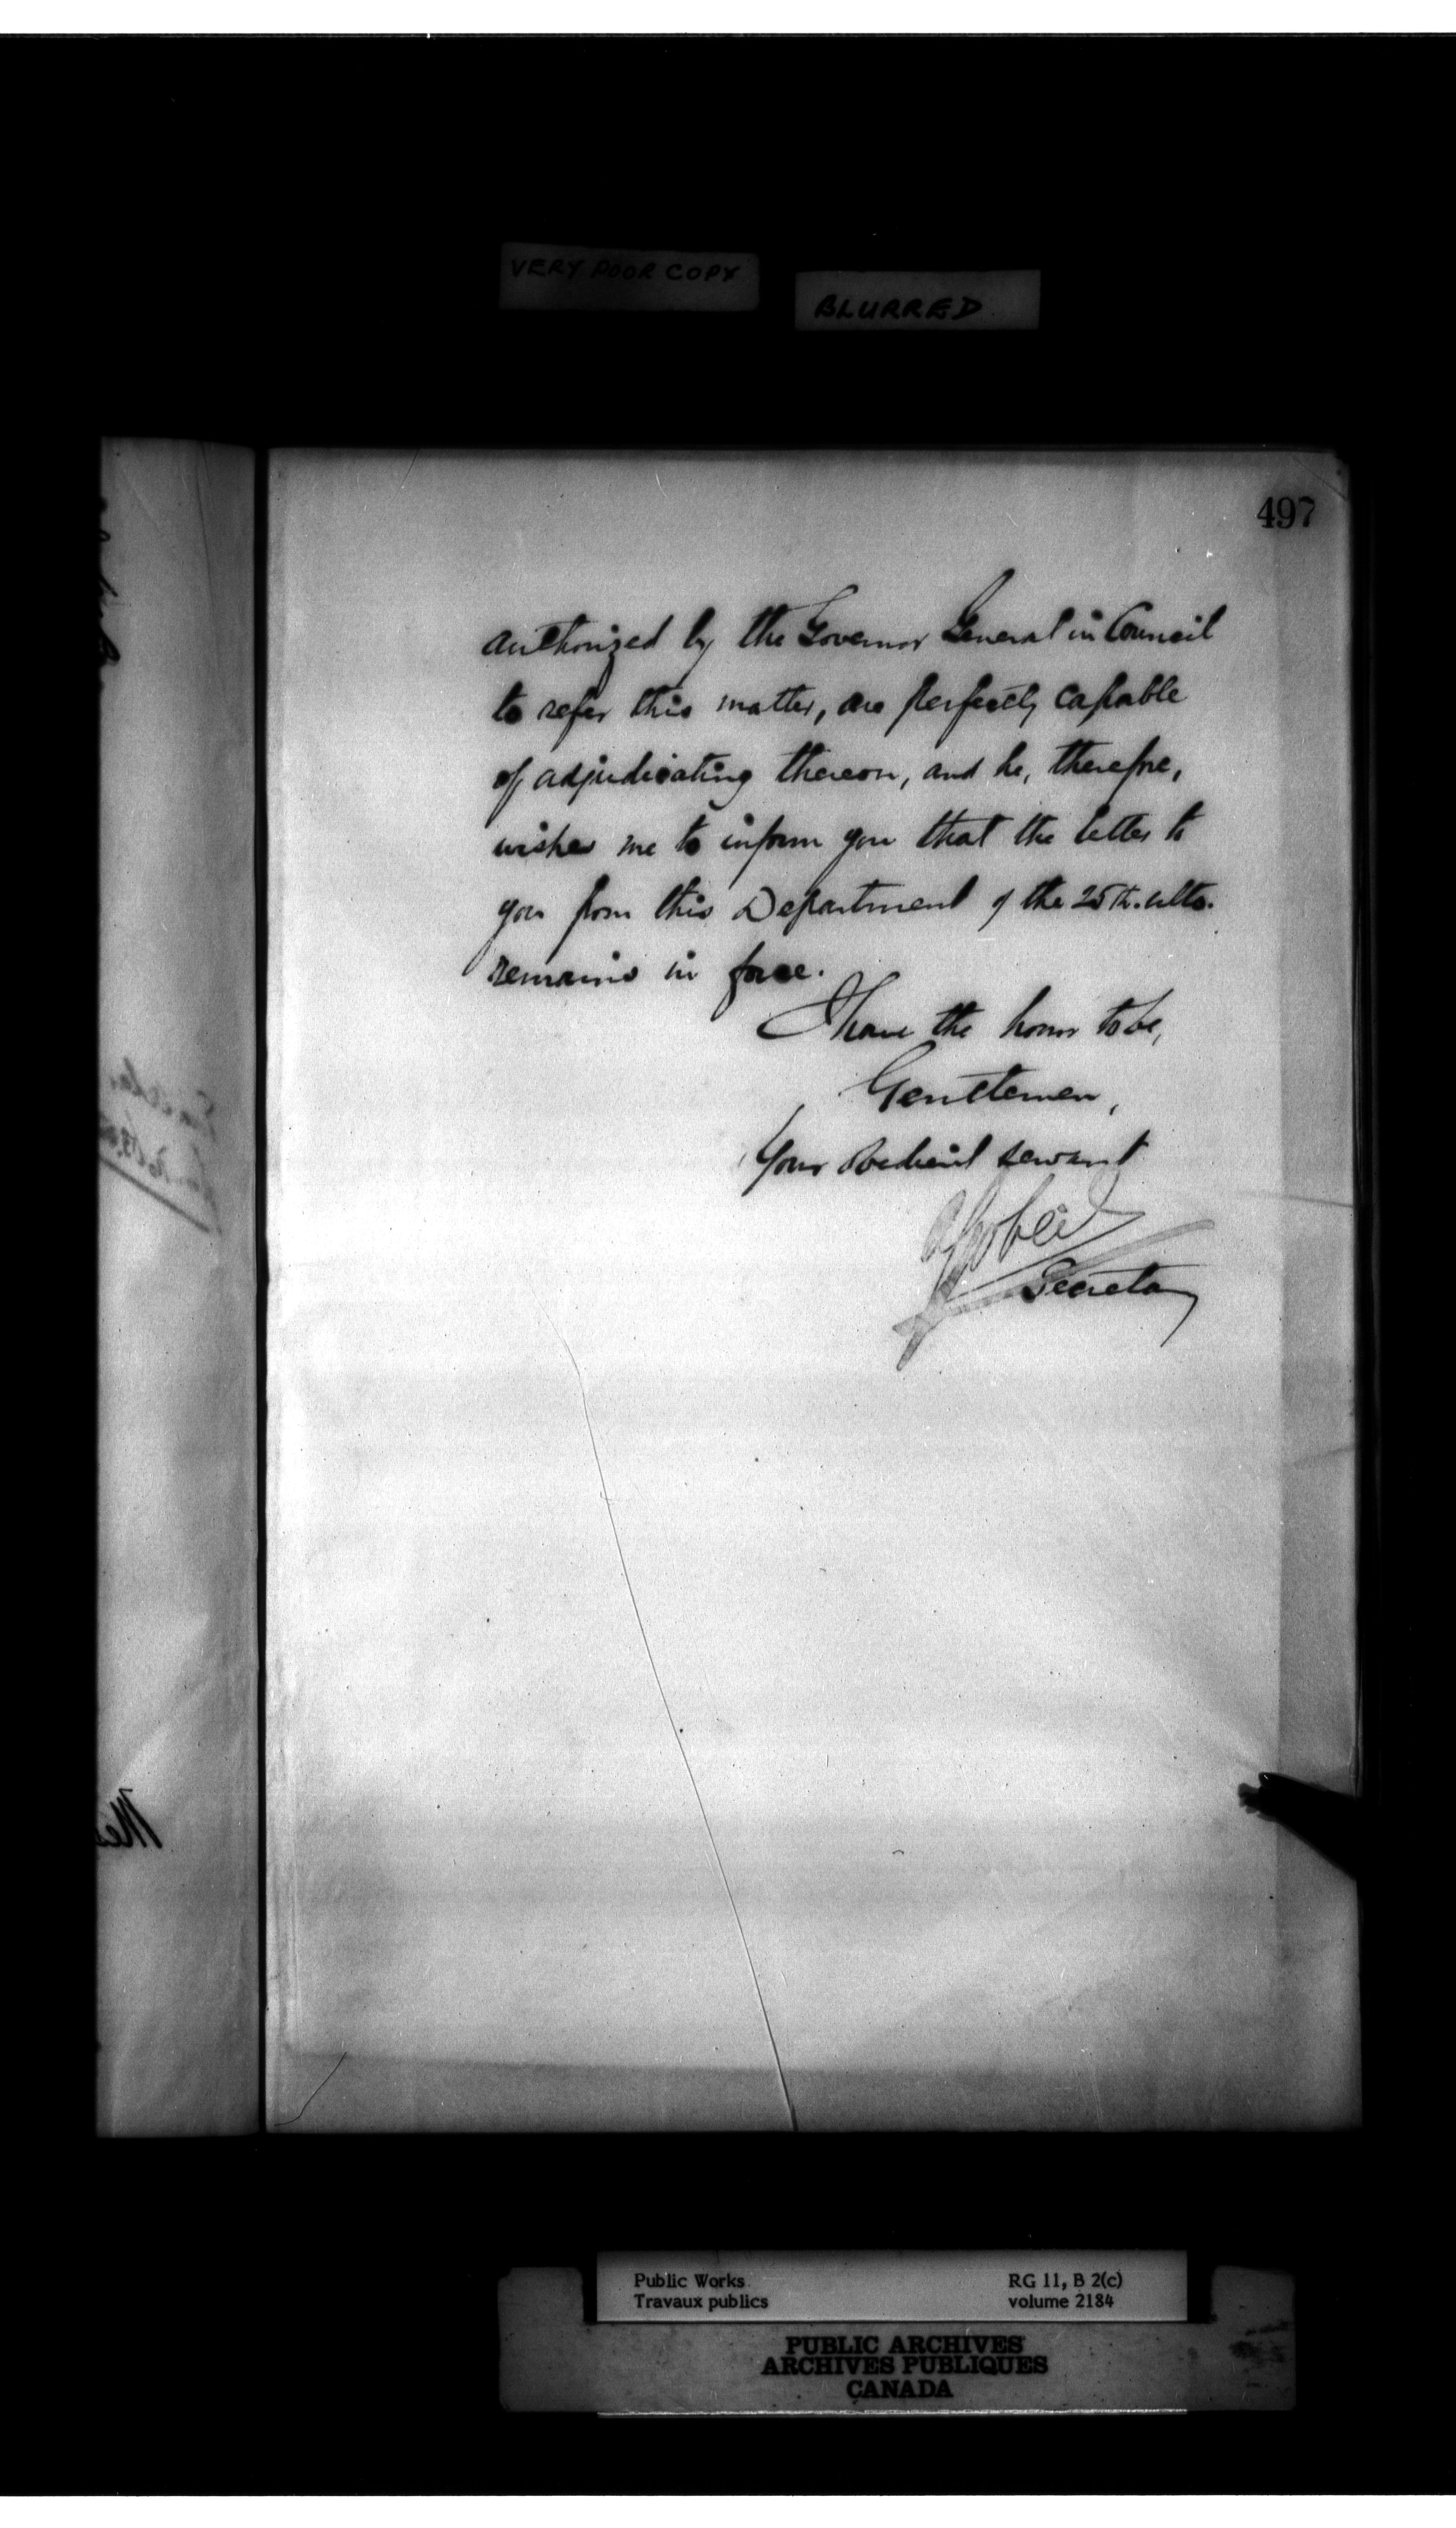 VERY POOR COPY
BLURRED
497
authorized by the Governor General in Council
to refer this matter, are perfectly capable
of adjudicating thereon, and he, therefore,
wishes me to inform you that the letter to
you from this Department of the 25th. ulto.
remains in force.
I have the honor to be,
Gentlemen,
Your obedient servant
AGobeil
Secretary
Public Works
Travaux publics
RG 11, B 2(c)
volume 2184
PUBLIC ARCHIVES
ARCHIVES PUBLIQUES
CANADA